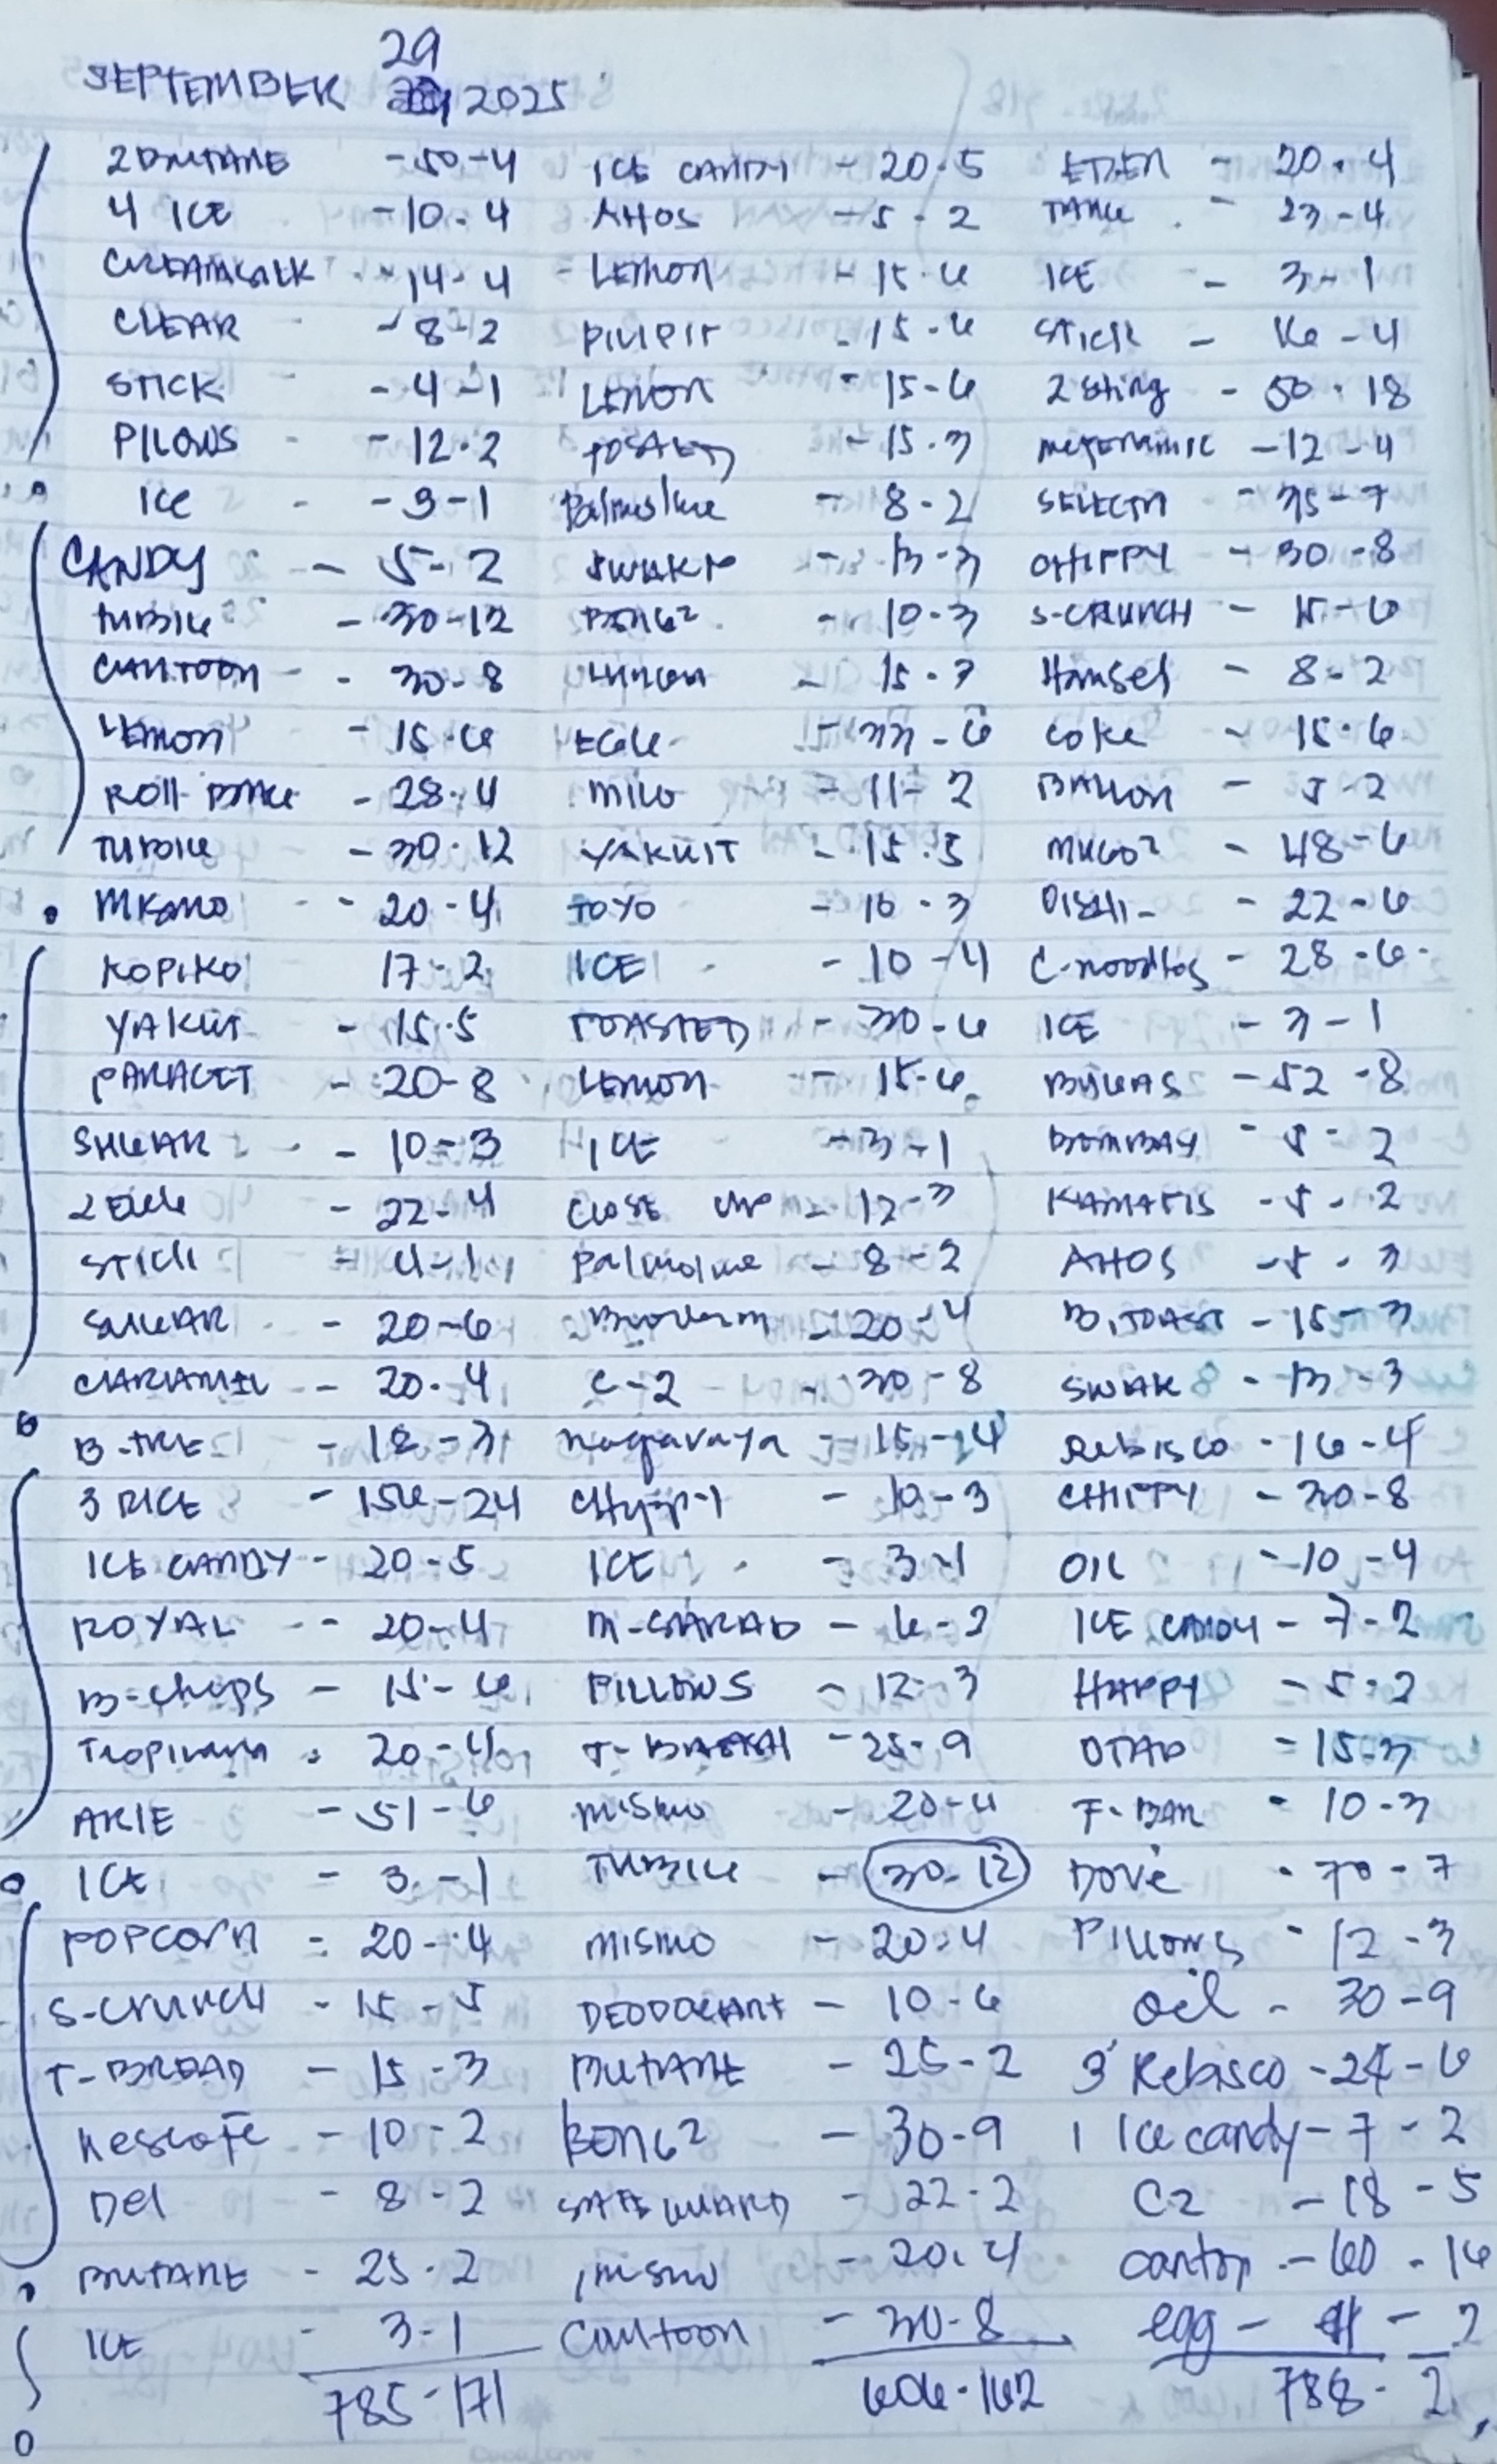 29
SEPTEMBER 2025
2 BUTANE - 50 - 4
4 ICE - 10 - 4
CREAMSILK - 14 - 4
CLEAR - 8 - 2
STICK - 4 - 1
PILOWS - 12 - 2
ICE - 3 - 1
CANDY - 5 - 2
TUBIG - 30 - 12
CANTOON - 30 - 8
LEMON - 15 - 6
ROLL - 28 - 4
TUBIG - 30 - 12
20 - 4
KOPIKO 17 - 2
YAKUT - 15 - 5
PARACET - 20 - 8
SHUGAR - 10 - 3
2 EGG - 22 - 4
STICK - 4 - 1
SHUGAR - 20 - 6
- 20 - 4
B-TRE - 18 - 3
3 RICE - 156 - 24
ICE CANDY - 20 - 5
ROYAL - 20 - 4
B-chips - 15 - 6
Tropicana - 20 - 4
ARIE - 51 - 6
ICE - 3 - 1
POPCORN - 20 - 4
S-CRUNCH - 15 - 5
T-BREAD - 15 - 3
Nescafe - 10 - 2
Del - 8 - 2
BUTANE - 25 - 2
ICE - 3 - 1
785 - 171
ICE CANDY - 20 - 5
AHOS - 5 - 2
LEMON - 15 - 6
PILIPIT - 15 - 6
LEMON - 15 - 6
- 15 - 3
Palmolive - 8 - 2
SWAK - 13 - 3
BENG2 - 10 - 3
- 15 - 3
EGG - 33 - 6
MILO - 11 - 2
YAKULT - 15 - 5
TOYO - 10 - 3
ICE - 10 - 4
TOASTED - 30 - 6
LEMON - 15 - 6
ICE - 3 - 1
CLOSE UP - 12 - 3
Palmolive - 8 - 2
Bioderm - 20 - 4
C-2 - 30 - 8
Nagaraya - 15 - 4
- 10 - 3
ICE - 3 - 1
- 6 - 2
PILLOWS - 12 - 3
T-BRUSH - 25 - 9
MISMO - 20 - 4
TUBIG - 30 - 12
MISMO - 20 - 4
DEODORANT - 10 - 6
BUTANE - 25 - 2
BENG2 - 30 - 9
SAFEGUARD - 22 - 2
MISMO - 20 - 4
Cantoon - 30 - 8
606 - 162
EDEN - 20 - 4
TANG - 23 - 4
ICE - 3 - 1
STICK - 16 - 4
2 sting - 50 - 18
- 12 - 4
SELECTA - 35 - 7
CHIPPY - 30 - 8
S-CRUNCH - 15 - 6
Hansel - 8 - 2
Coke - 15 - 6
BALLON - 5 - 2
- 48 - 6
- 22 - 6
C-noodles - 28 - 6
ICE - 3 - 1
BUGAS - 52 - 8
BOMBAY - 5 - 2
KAMATIS - 5 - 2
AHOS - 5 - 3
B.TOAST - 15 - 3
SWAK - 13 - 3
Rebisco - 16 - 4
CHIPPY - 30 - 8
OIL - 10 - 4
ICE CANDY - 7 - 2
HAPPY - 5 - 2
OTAP - 15 - 3
F-BAR - 10 - 3
DOVE - 70 - 7
PILLOWS - 12 - 3
oil - 30 - 9
3 Rebisco - 24 - 6
1 Ice candy - 7 - 2
C2 - 18 - 5
canton - 60 - 16
egg - 11 - 2
788 - 2